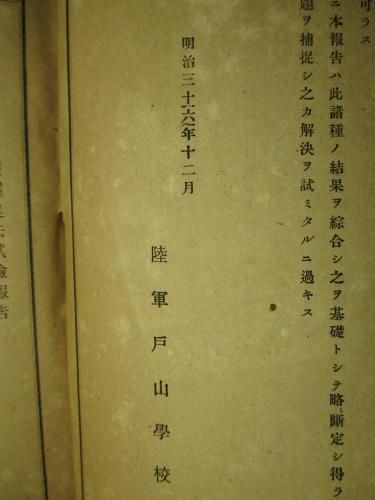 可ラス
ニ本報告ハ此諸種ノ結果ヲ綜合シ之ヲ基礎トシテ略〻斷定シ得ラ
題ヲ捕捉シ之カ解決ヲ試ミタルニ過キス
明治三十六年十二月
陸軍戶山學校
法試驗報告